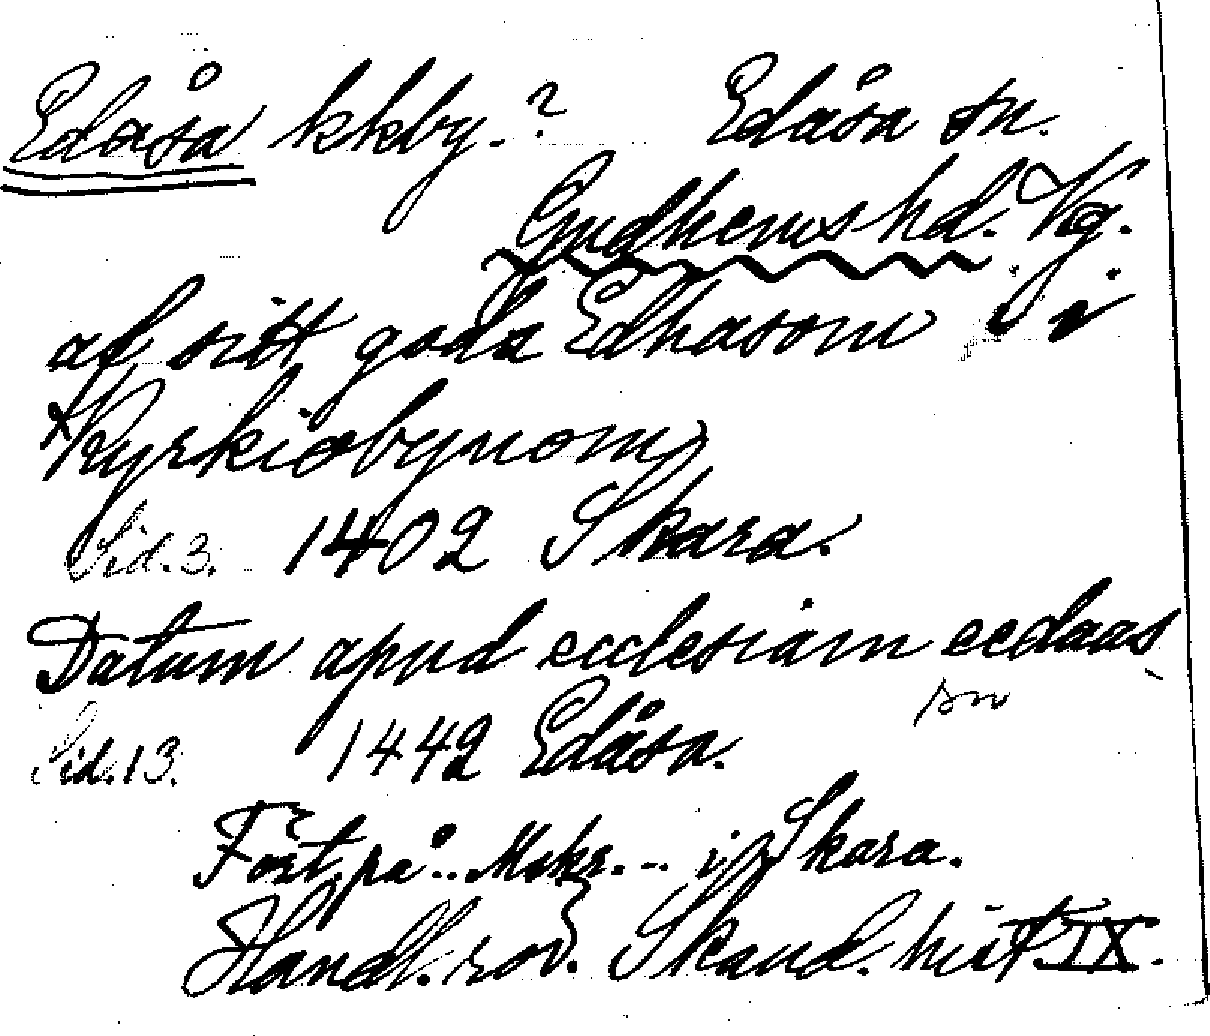 Edåsa kkby.? Edåsa sn.
Gudhems hd. Vg.
af sitt goda Edhasom i
Kyrkiobynom
Sid. 3. 1402 Skara.
Datum apud ecclesiam eedaas
sn
Sid. 13. 1442 Edåsa.
Fört på .. Mskr. -- i Skara.
Handl. rör. Skand. hist IX.